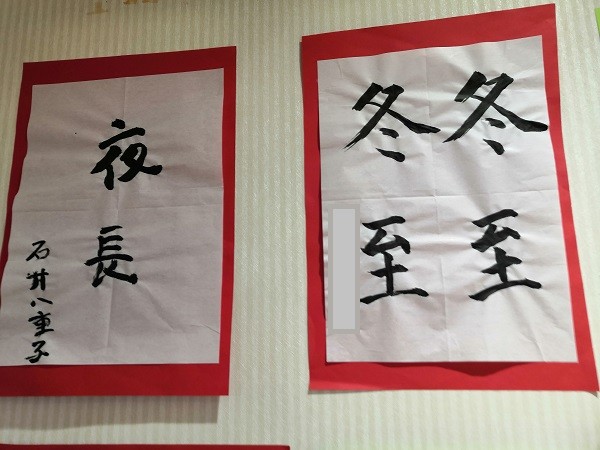 冬至
冬至
夜長
石井八重子